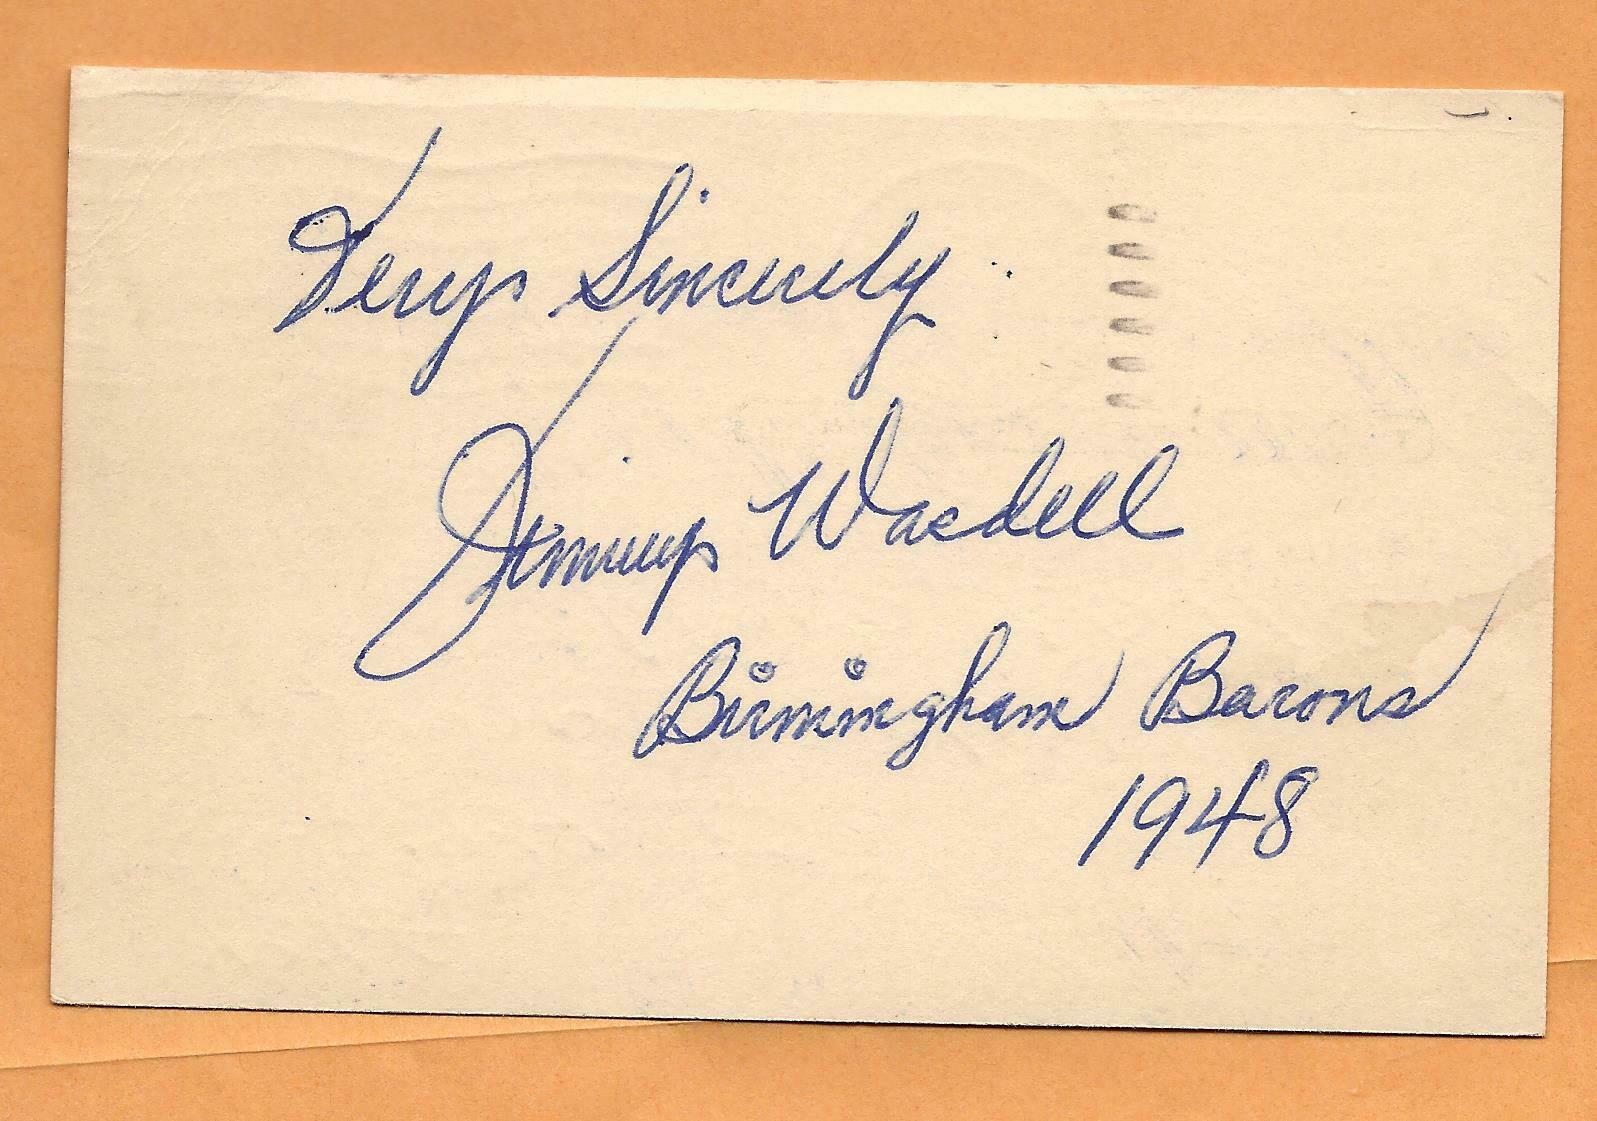 Very Sincerely
Jimmy Wasdell
Birmingham Barons
1948